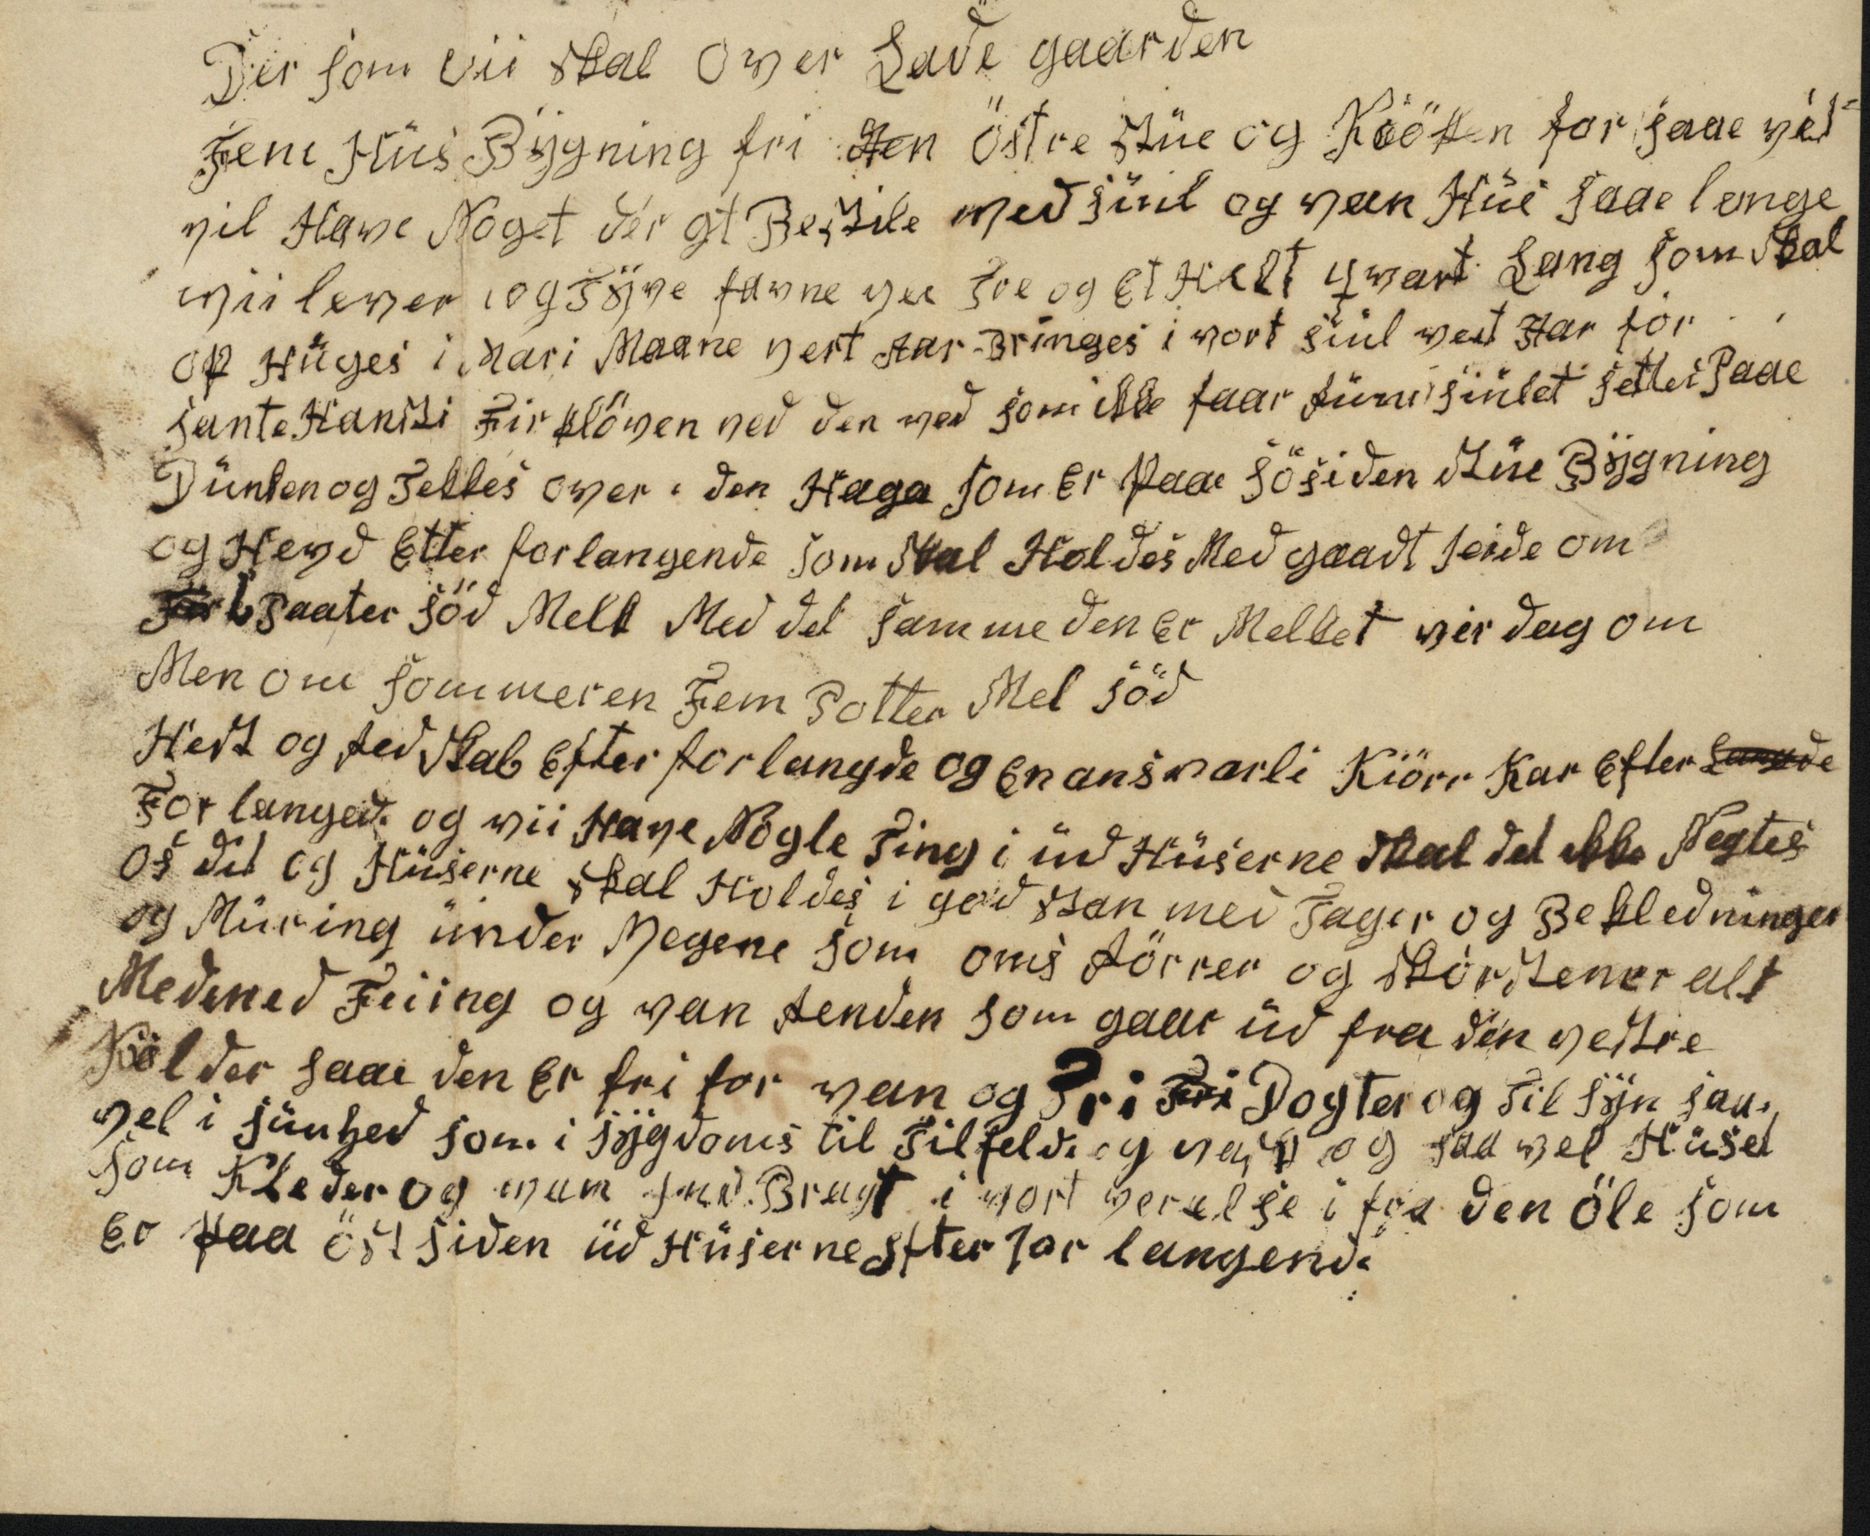 Der som vii skal over Lade gaarden
Fem Hüs Bÿgning fri den östre stüe og Kööken for saae vit
vil Have Noget der at Bestile med siül og van Hüs saae lenge
wii lever og Tÿve favne vee Tre og Et Halt qvart Lang som skal
op Hüges i Mari Maane vert Aar Bringes i vort siül ved Aar for
sante Hansti Fir klöven ved den ved som ikke faar rüm i siület settes Paae
Tünten og Telles over i den Haga som Er Paae sösiden stüe Bÿgning
og Hevd Etter forlangende som skal Holdes Med gaadt feide om
6 Paater söd Melk Med det samme den Er Melket vir dag om
Men om sommeren Fem Potter Mel söd
Hest og red skab Efter forlangde og En answarli Kiörr Kar Efter Langde
For langede og vii Have Nogle Ting i üd Hüserne skal det ikke Negtes
os det og Hüserne skal Holdes i god stan med Tager og Bekledninger
og Müring ünder Megene som oms törrer og skorstener alt
Medmed Feiing og van renden som gaar üd fra den vestre
Kölder saae den Er fri for van og Fri Fri Dogter og Til sÿn saa
vel i sünhed som i sÿgdoms til Tilfelde og vask og saa vel Hüset
som Kleder og vam mad Bragt i vort verelse i fra den öle som
Er Paa öst siden üd Hüserne Efter for langende